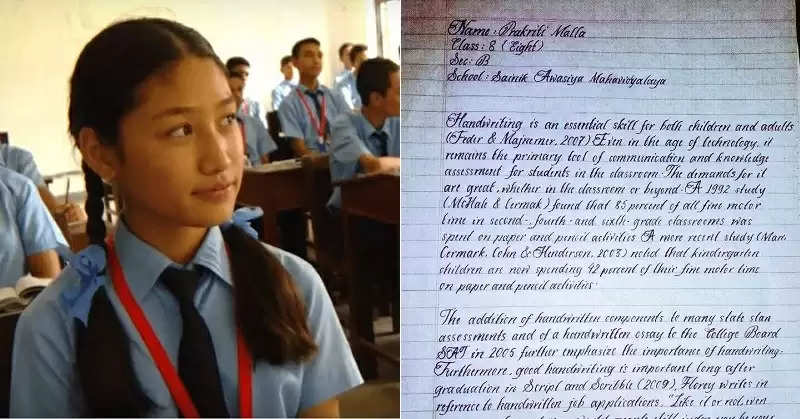 Name : Prakriti Malla
Class : 8 ( Eight )
Sec : B
School : Sainik Awasiya Mahavidyalaya
Handwriting is an essential skill for both children and adults
(Feder & Majnemer, 2007) Even in the age of technology, it
remains the primary tool of communication and knowledge
assessment for students in the classroom. The demands for it
are great, whether in the classroom or beyond. A 1992 study
(McHale & Cermak) found that 85 percent of all fine motor
time in second-, fourth- and sixth- grade classrooms was
spent on paper and pencil activities A more recent study (Marr,
Cermark, Cohn & Henderson, 2003) noted that kindergarten
children are now spending 42 percent of their fine motor time
on paper and pencil activities.
The addition of handwritten components to many state stan
assessments and of a handwritten essay to the College Board
SAT in 2005 further emphasize the importance of handwriting.
Furthermore, good handwriting is important long after
graduation in Script and Scribble (2009), Florey writes in
reference to handwritten job applications, "Like it or not, even